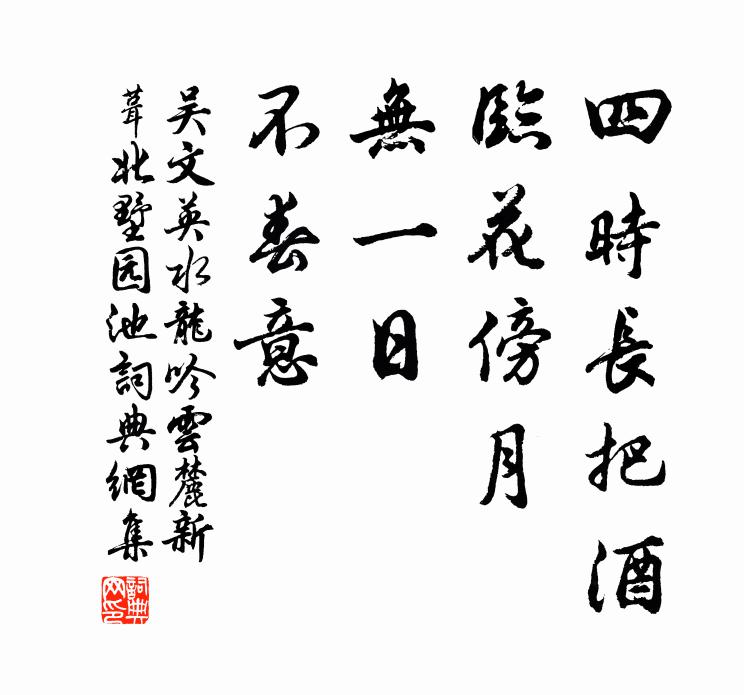 四時長把酒
臨花傍月
無一日
不春意
吴文英水龍吟雲麓新
葺北墅园池詞典網集
詞典网印